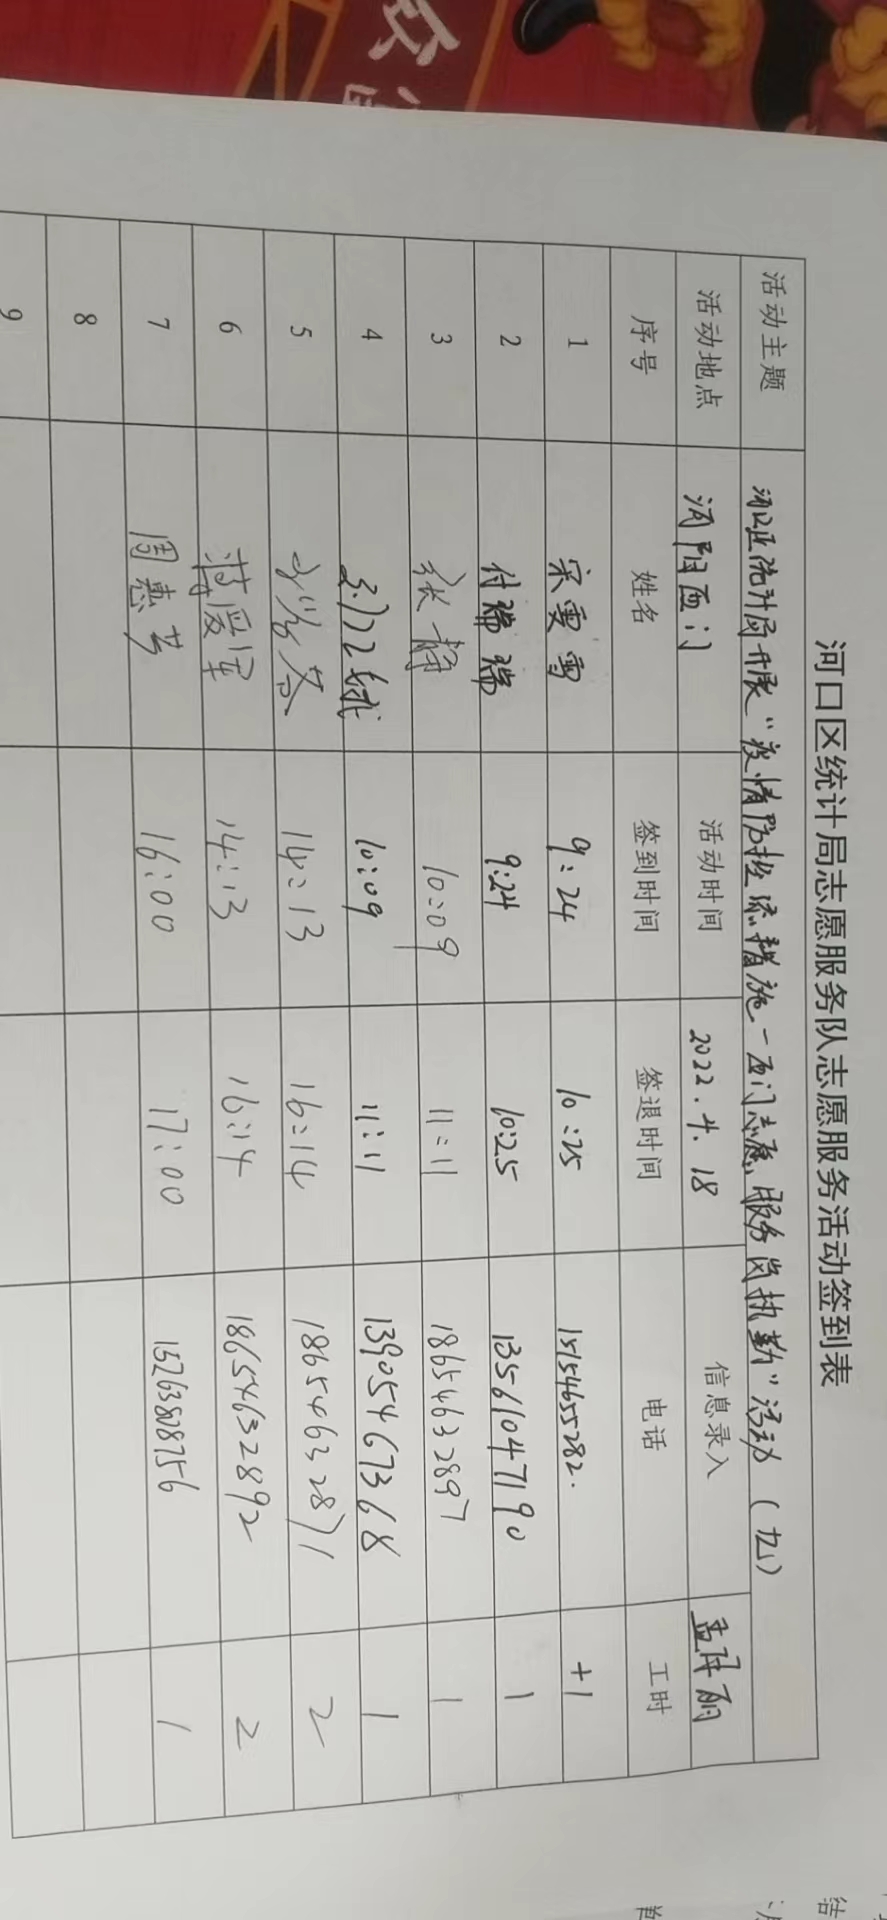 河口区统计局志愿服务队志愿服务活动签到表
活动主题 河口区统计局开展"疫情防控 措施—西门志愿服务岗执勤"活动(九)
活动地点 河阳西门 活动时间 2022.4.18 信息录入 孟
序号 姓名 签到时间 签退时间 电话 工时
1 宋雯雪 9:24 10:25 15154655282. +1
2 付瑞瑞 9:24 10:25 13561047190 1
3 张静 10:09 11:11 18654632897 1
4 10:09 11:11 13905467368 1
5 14:13 16:14 18654632871 2
6 蒋爱军 14:13 16:14 18654632892 2
7 周惠芳 16:00 17:00 15263808756 1
8
9
结